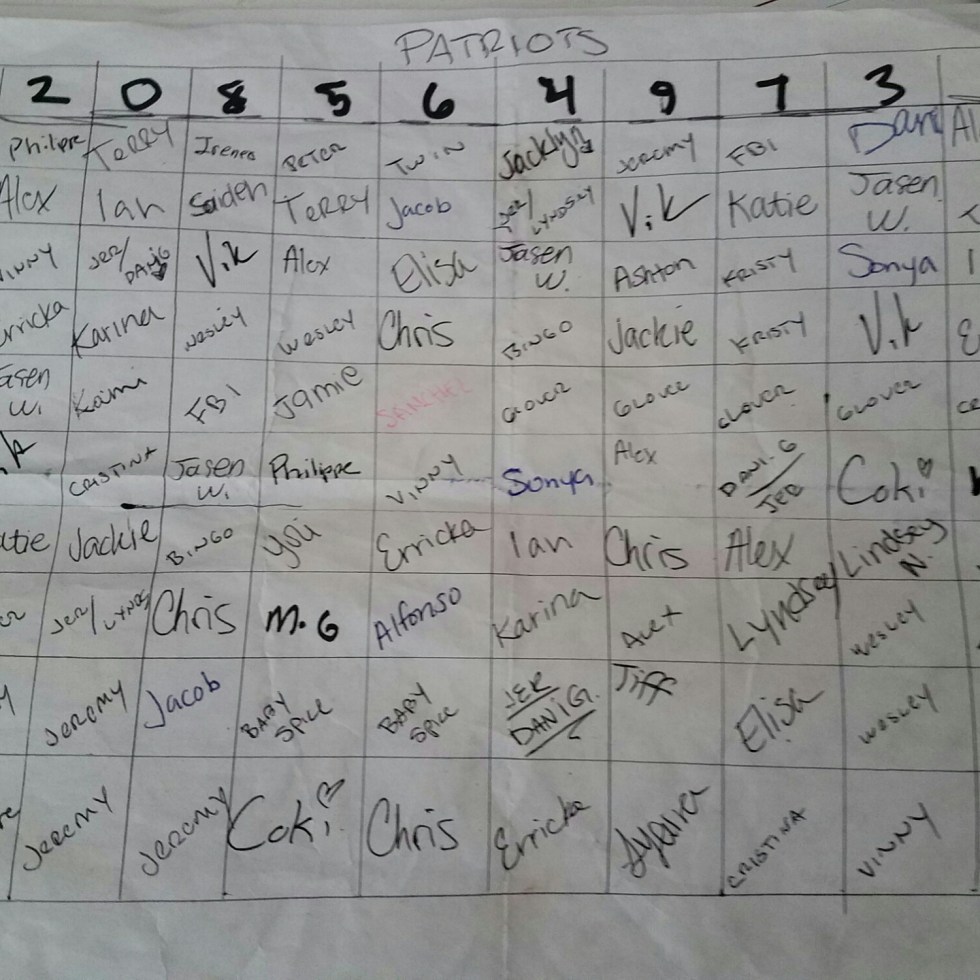 PATRIOTS
2 0 8 5 6 4 9 7 3
Philippe TERRY Irenea PETER TWIN Jacklyn JEREMY FBI Dani
Alex Ian Saiden TERRY Jacob JER/LYNDSEY Vik Katie Jasen W.
VINNY JER/DANIG Vik Alex Elisa Jasen W. Ashton KRISTY Sonya
Erricka Karina WESLEY WESLEY Chris BINGO Jackie KRISTY Vik
Jasen W. Kami FBI Jamie SANCHEZ GLOVER GLOVER GLOVER GLOVER
CRISTINA Jasen W. Philippe VINNY Sonya Alex DANI.G/JER Coki
atie Jackie BINGO you Erricka Ian Chris Alex Lindsey N.
JER/LYNDS Chris M.G Alfonso Karina Alex Lyndsey WESLEY
JEREMY Jacob BABY SPICE BABY SPICE JER DANIG. Jiff Elisa WESLEY
JEREMY JEREMY Coki Chris Erricka CRISTINA VINNY